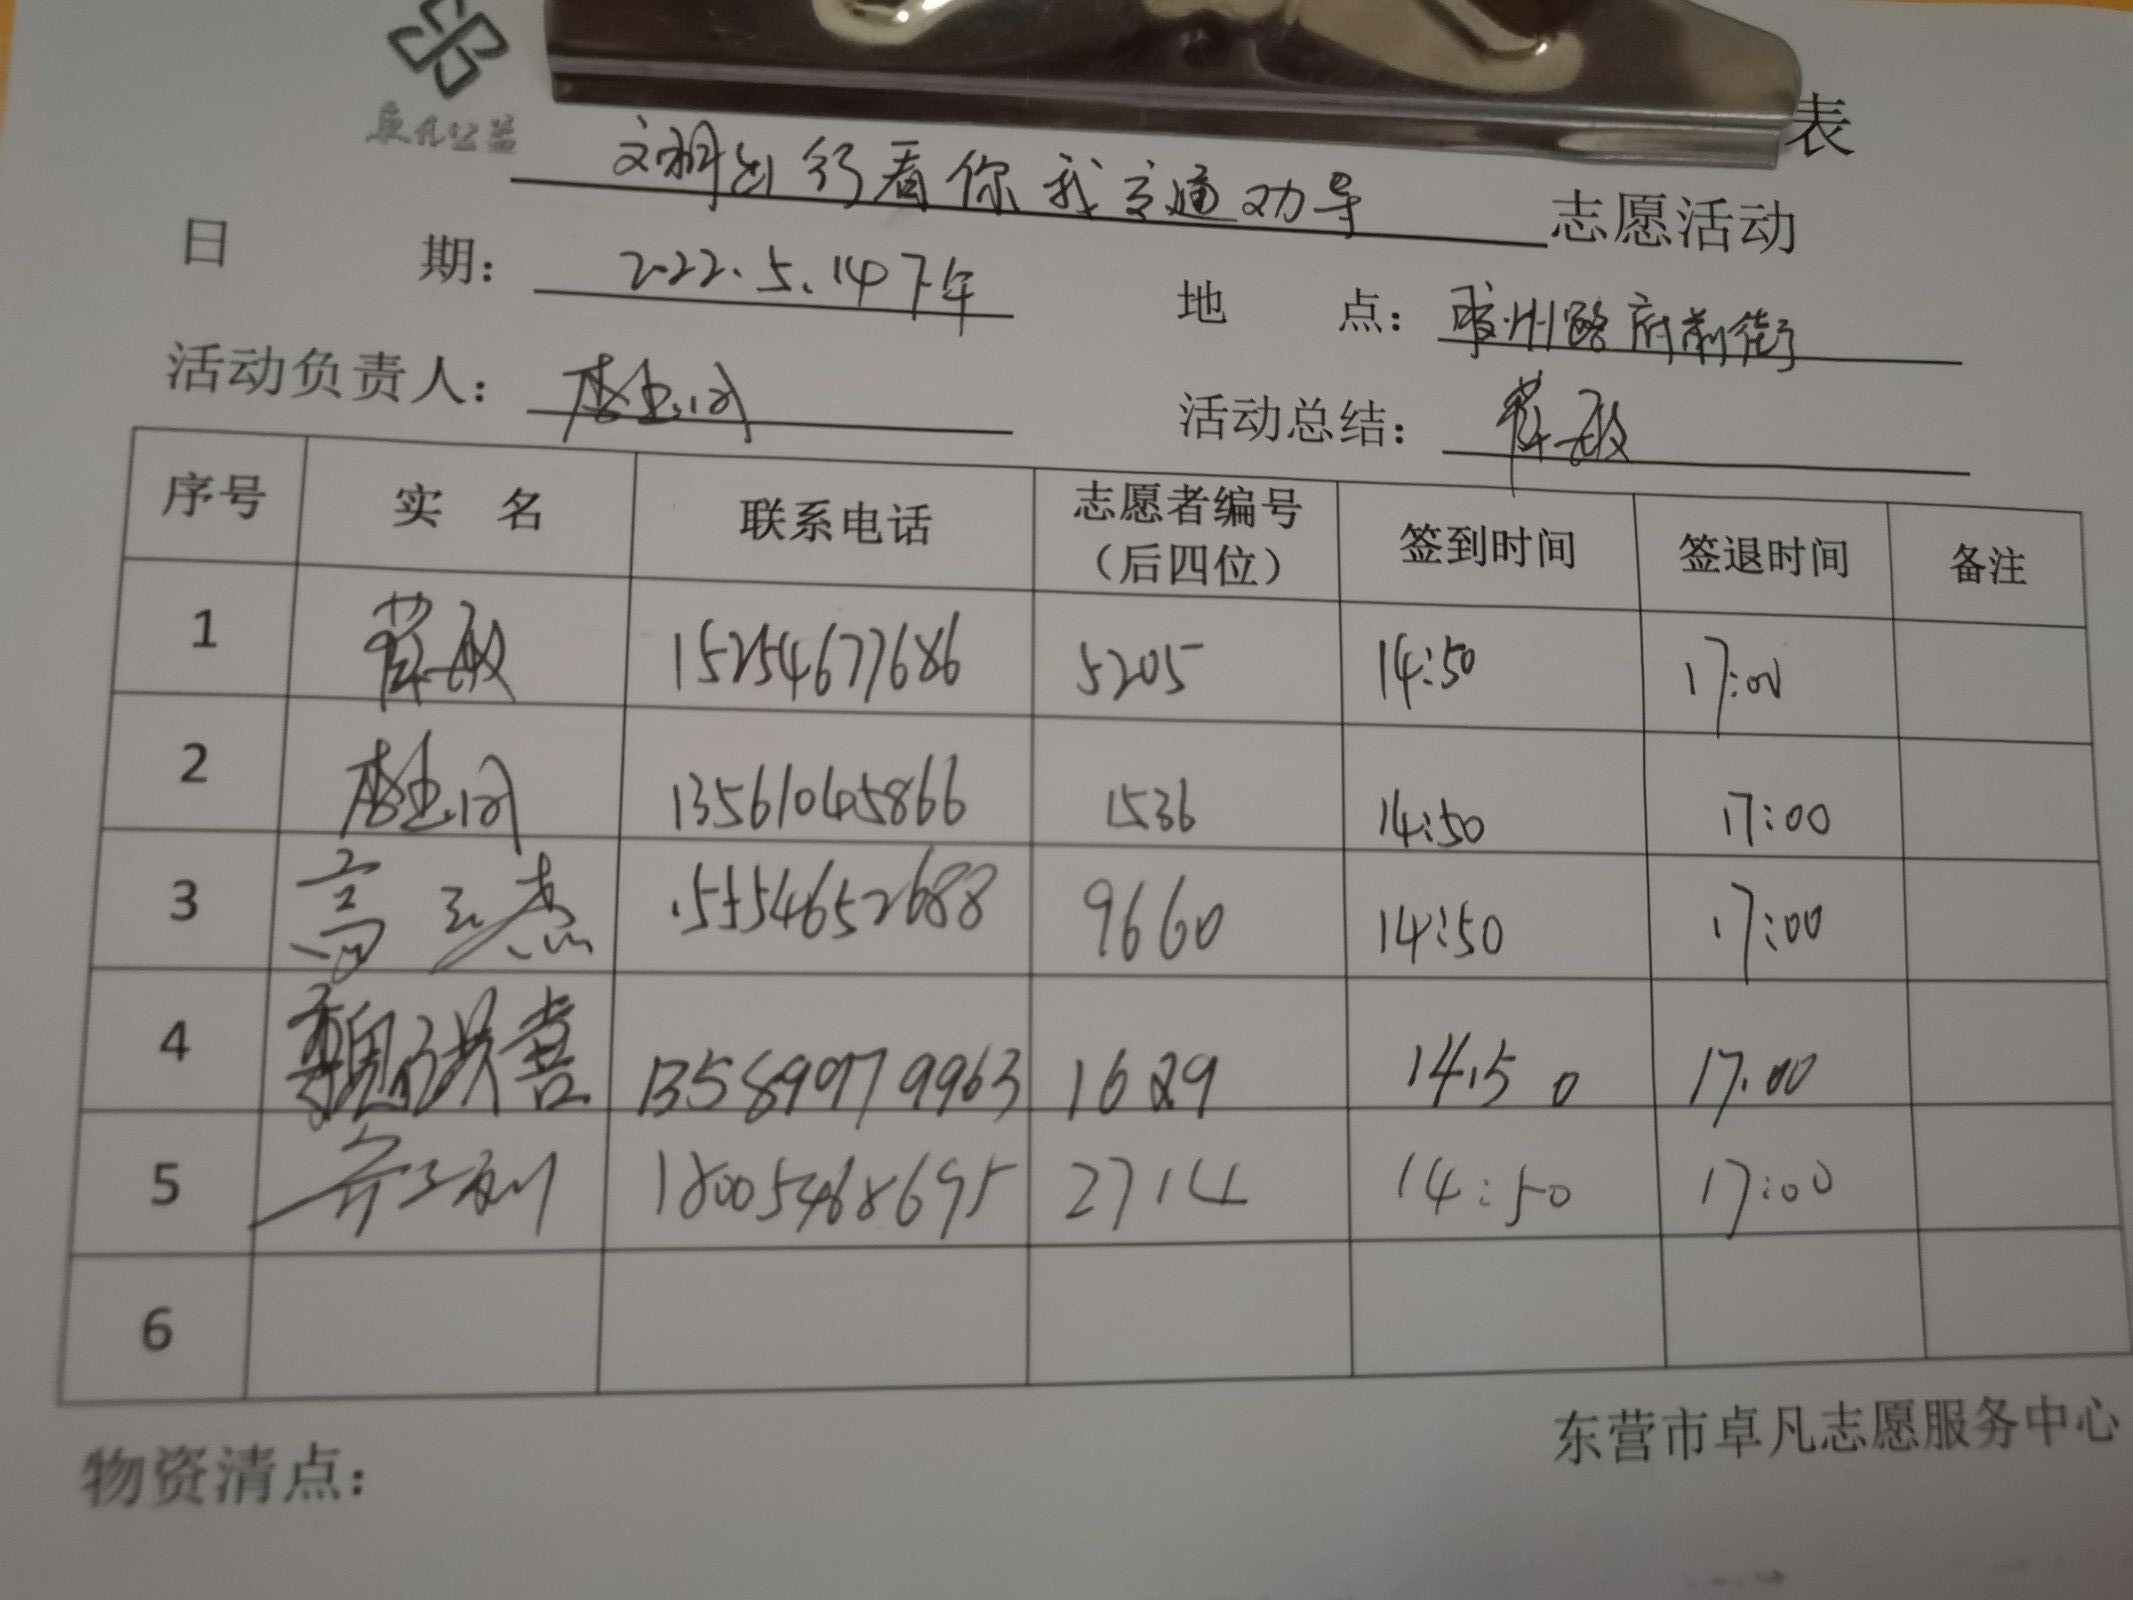 卓凡公益
表
文明出行看你我交通劝导 志愿活动
日 期: 2022.5.14下午 地 点: 胶州路府前街
活动负责人: 活动总结:
序号 实 名 联系电话 志愿者编号(后四位) 签到时间 签退时间 备注
1 15254677686 5205 14:50 17:00
2 13561045866 1536 14:50 17:00
3 高 9660 14:50 17:00
4 魏洪喜 1629 14.50 17.00
5 18005468695 2714 14:50 17:00
6
物资清点: 东营市卓凡志愿服务中心